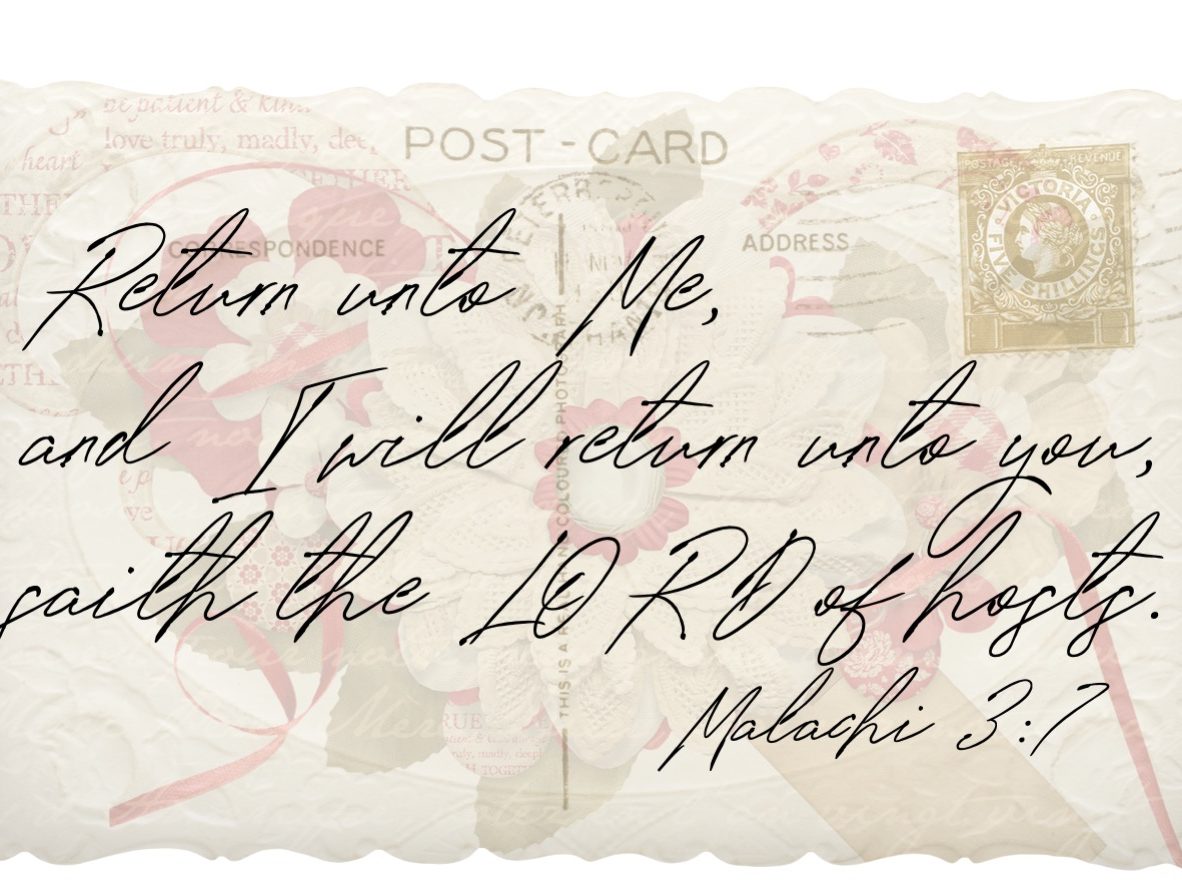 be patient & kin
love truly, madly, dee
heart
POST-CARD
CORRESPONDENCE
ADDRESS
POSTAGE REVENUE
VICTORIA
FIVE SHILLINGS
Return unto Me,
and I will return unto you,
saith the LORD of hosts.
Malachi 3:7
THIS IS A COLOURED PHOTOGRAPH
madly, deep
TOGETHER